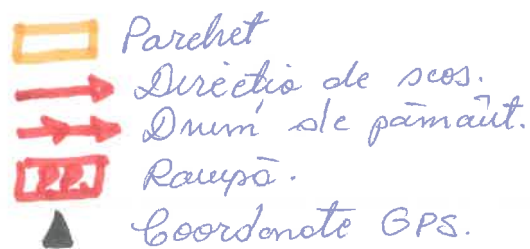 Parchet
Direcția de scos.
Drum de pământ.
R.P. Rampă.
Coordonate GPS.